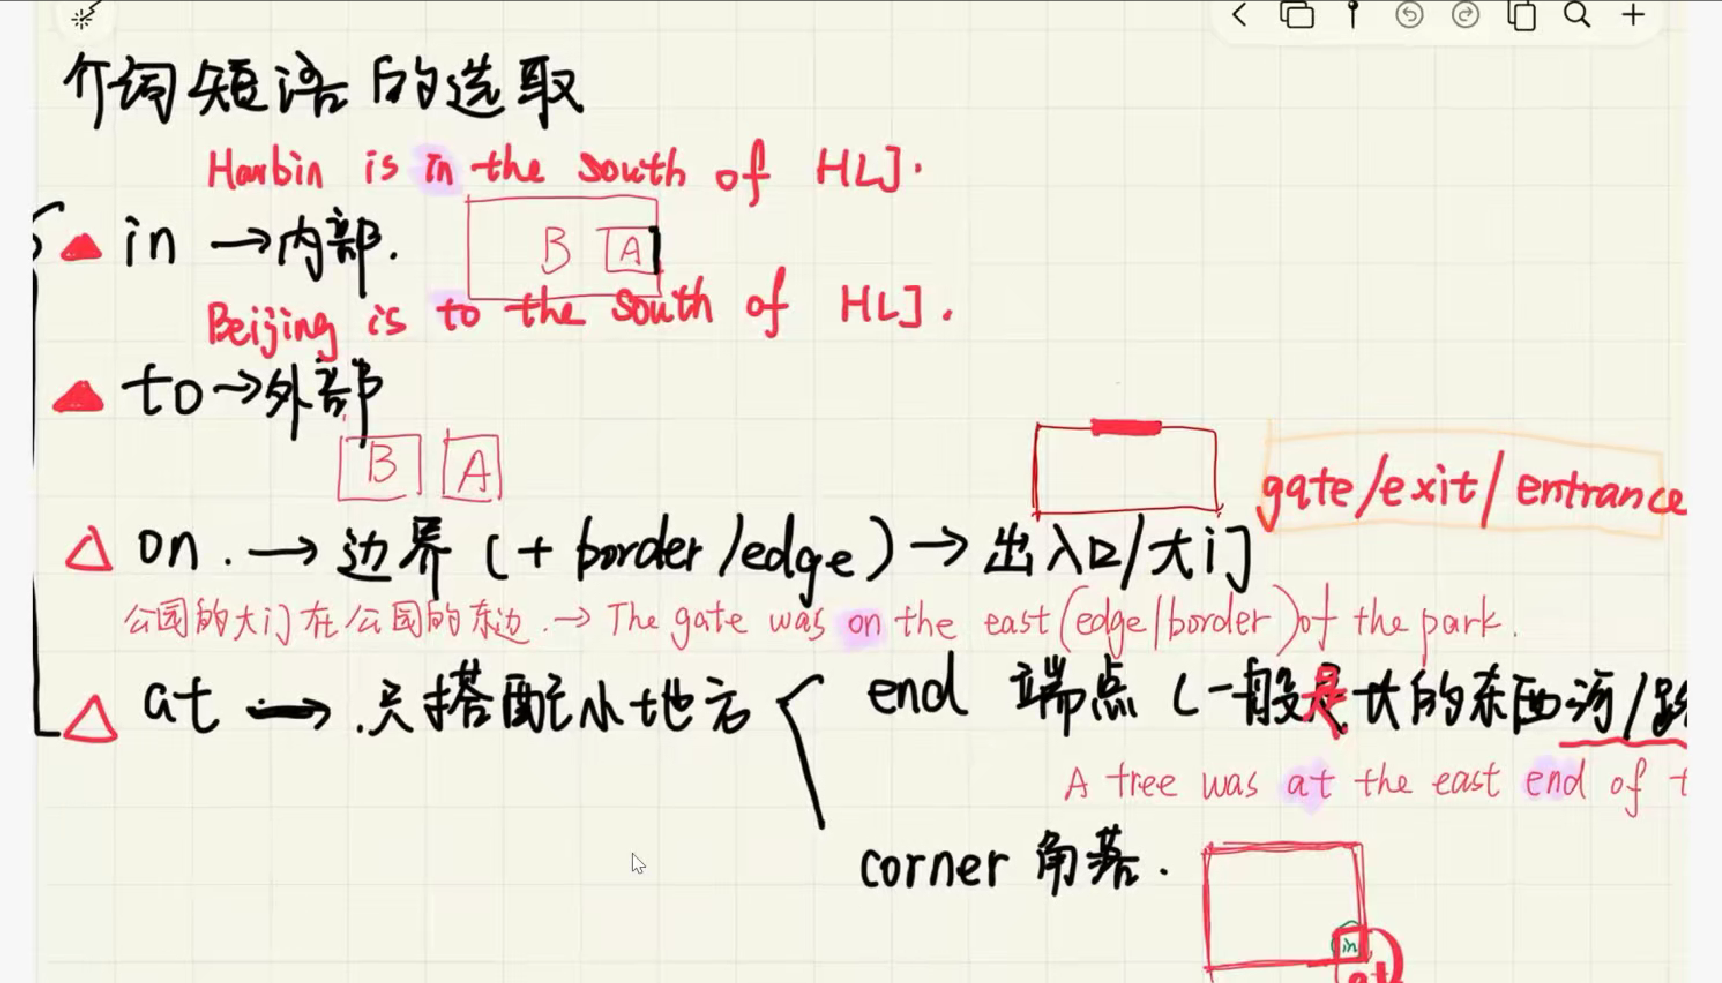 介词短语的选取
Harbin is in the south of HLJ.
in →内部.
B A
Beijing is to the south of HLJ.
to→外部
B A
gate/exit/entrance
on. → 边界 (+ border/edge) → 出入口/大门
公园的大门在公园的东边.→ The gate was on the east(edge/border)of the park.
at → .只搭配小地方
end 端点 (一般是长的东西河/路
A tree was at the east end of t
corner 角落.
in
at